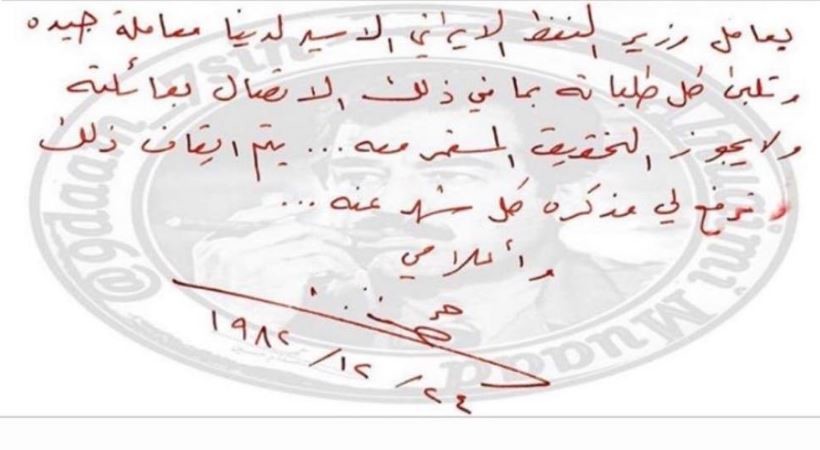 يعامل وزير النفط الايراني الاسير لدينا معاملة جيده
وتلبى كل طلباته بما في ذلك الاتصال بعائلته
ولا يجوز التحقيق المستمر معه... يتم ايقاف ذلك
وترفع لي مذكره كل شهر عنه...
وأعلامي
١٩٨٢/١٢/٢٤
@gdaah_7sth
Muaad